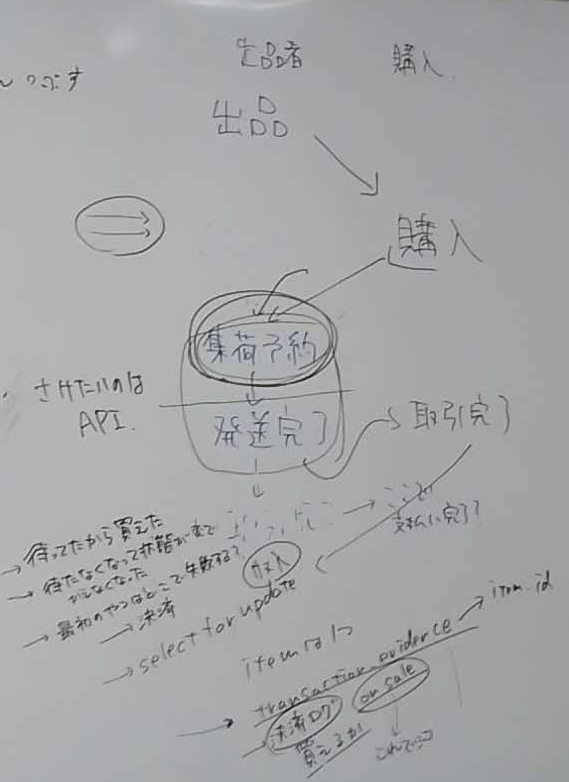 つぶす
出品者 購入
出品
購入
集荷予約
さけたいのは
API.
発送完了
取引完了
待ってたから買えた
支払い完了?
待たなくなって状態が
がらなくなった
最初のやつはどこで失敗する?
決済
select for update
item.id
item
transaction_evidence
決済ログ
on sale
買えるか